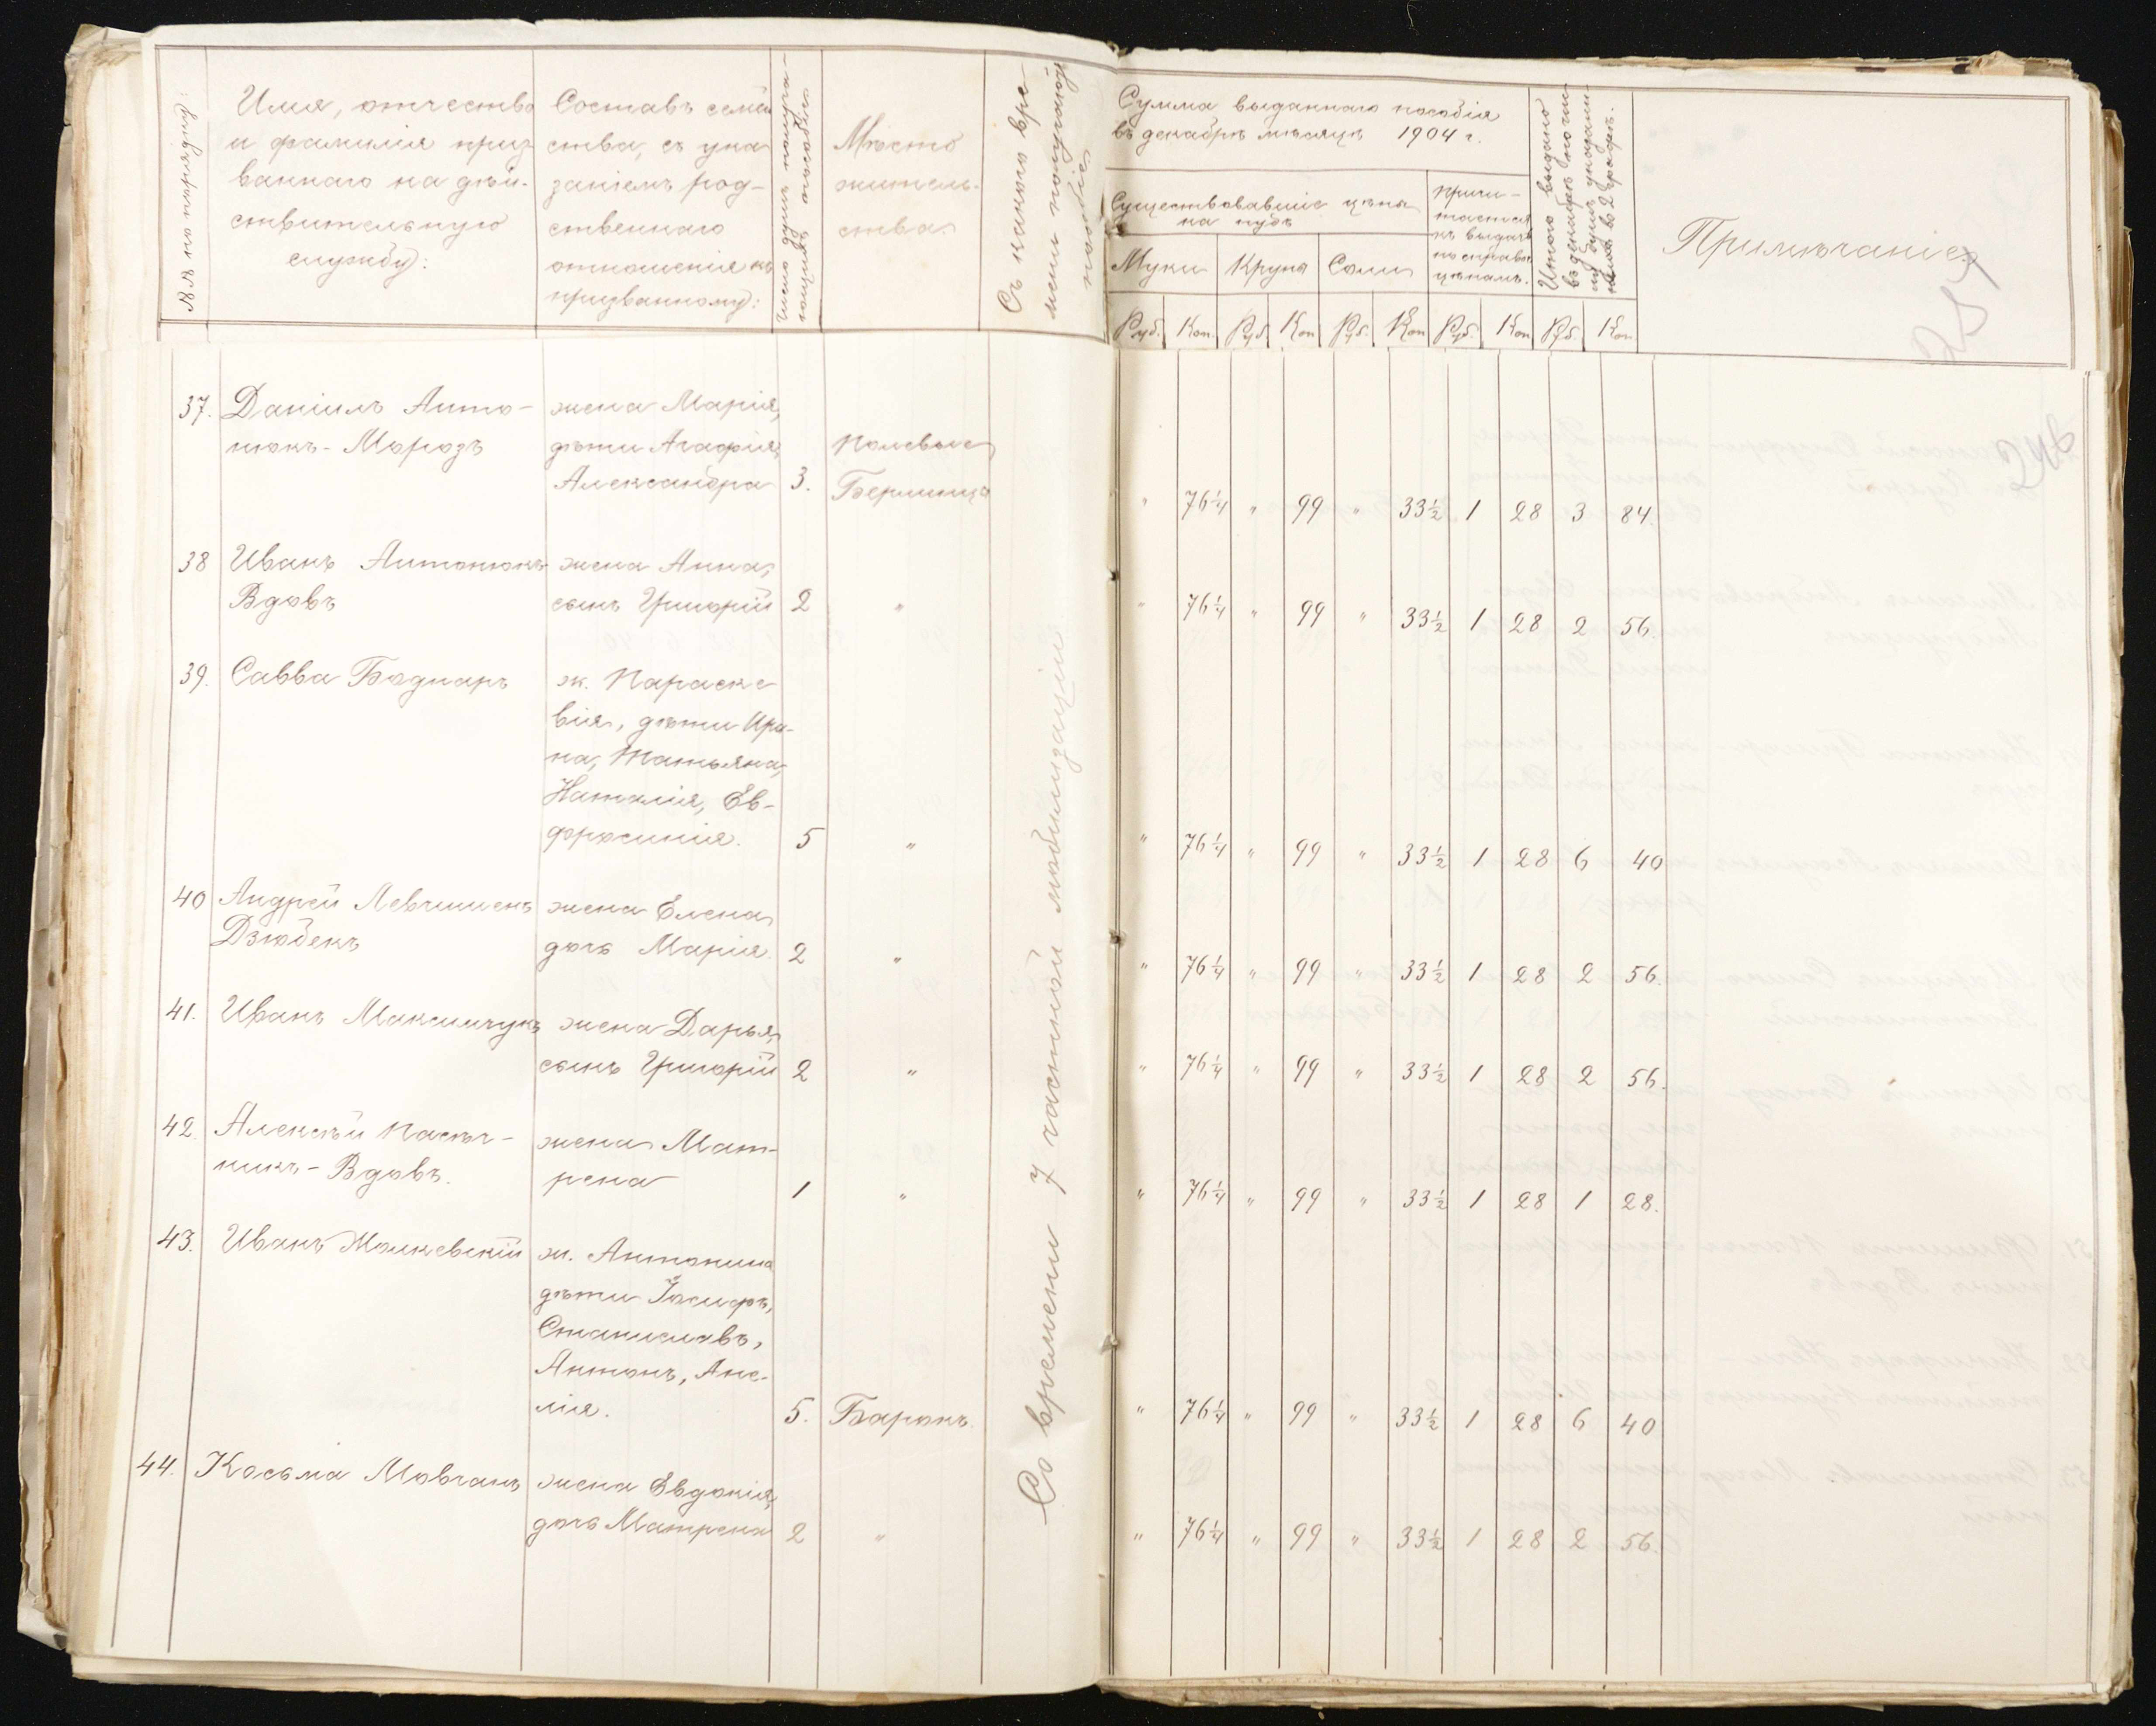 №№ по порядку:
Имя, отчество
и фамилія приз
ваннаго на дѣй-
ствительную
службу:
Составъ семей
ства, съ ука
заніемъ род-
ственнаго
отношенія къ
призванному:
Число душъ получа-
ющихъ пособіе
Мѣсто
житель-
ства
Съ какого вре-
мени получаютъ
пособіе
Сумма выданнаго пособія
въ декабрѣ мѣсяцѣ 1904 г.
Существовавшіе цѣны
на пудъ
Муки Крупа Соли
Причи-
тается
къ выдачѣ
по справоч
цѣнамъ.
Итого выдано
въ декабрѣ
Примѣчаніе
Руб. Коп. Руб. Коп. Руб. Коп Руб. Коп Руб. Коп.
257
246
37. Даніилъ Анто-
нюкъ-Морозъ
жена Марія,
дѣти Агафія,
Александра 3.
Полевые
Берлинцы
" 76 1/4 " 99 " 33 1/2 1 28 3 84.
38 Иванъ Антонюкъ
Вдовъ
жена Анна,
сынъ Григорій 2 "
" 76 1/4 " 99 " 33 1/2 1 28 2 56.
39. Савва Боднаръ
ж. Параске
вія, дѣти Ири-
на, Татьяна,
Наталія, Ев-
фросинія. 5 "
" 76 1/4 " 99 " 33 1/2 1 28 6 40
40 Андрей Левчишенъ
Дзюбекъ
жена Елена
дочь Марія. 2 "
" 76 1/4 " 99 " 33 1/2 1 28 2 56.
41. Иванъ Максимчукъ
жена Дарья,
сынъ Григорій 2 "
" 76 1/4 " 99 " 33 1/2 1 28 2 56.
42. Алексѣй Пасѣч-
никъ-Вдовъ.
жена Мат-
рена 1 "
" 76 1/4 " 99 " 33 1/2 1 28 1 28.
43. Иванъ
ж. Антонина
дѣти Іосифъ,
Станиславъ,
Антонъ, Ане-
лія. 5. Баронъ.
" 76 1/4 " 99 " 33 1/2 1 28 6 40
44. Косьма Мовчанъ
жена Евдокія,
дочь Матрена 2 "
" 76 1/4 " 99 " 33 1/2 1 28 2 56.
Со времени 7 частной мобилизаціи